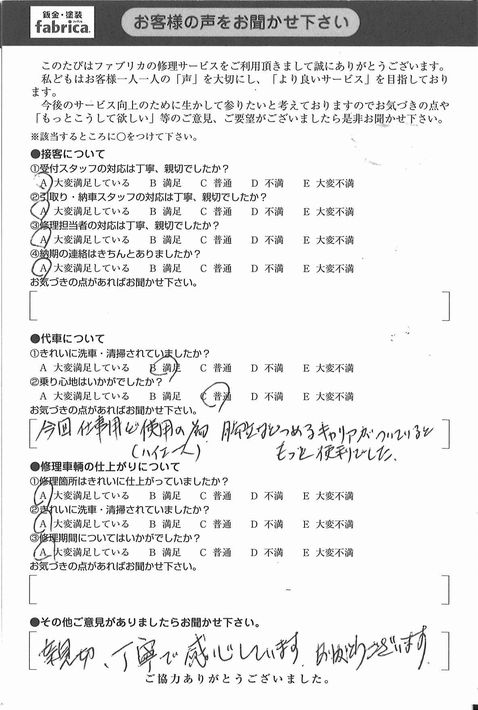 鈑金・塗装
fabrica.
お客様の声をお聞かせ下さい
このたびはファブリカの修理サービスをご利用頂きまして誠にありがとうございます。
私どもはお客様一人一人の「声」を大切にし、「より良いサービス」を目指しており
ます。
今後のサービス向上のために生かして参りたいと考えておりますのでお気づきの点や
「もっとこうして欲しい」等のご意見、ご要望がございましたら是非お聞かせ下さい。
※該当するところに○をつけて下さい。
●接客について
①受付スタッフの対応は丁寧、親切でしたか？
A 大変満足している B 満足 C 普通 D 不満 E 大変不満
②引取り・納車スタッフの対応は丁寧、親切でしたか？
A 大変満足している B 満足 C 普通 D 不満 E 大変不満
③修理担当者の対応は丁寧、親切でしたか？
A 大変満足している B 満足 C 普通 D 不満 E 大変不満
④納期の連絡はきちんとありましたか？
A 大変満足している B 満足 C 普通 D 不満 E 大変不満
お気づきの点があればお聞かせ下さい。
●代車について
①きれいに洗車・清掃されていましたか？
A 大変満足している B 満足 C 普通 D 不満 E 大変不満
②乗り心地はいかがでしたか？
A 大変満足している B 満足 C 普通 D 不満 E 大変不満
お気づきの点があればお聞かせ下さい。
今回仕事用で使用の為 などつめるキャリアがついていると
(ハイエース) もっと便利でした。
●修理車輌の仕上がりについて
①修理箇所はきれいに仕上がっていましたか？
A 大変満足している B 満足 C 普通 D 不満 E 大変不満
②きれいに洗車・清掃されていましたか？
A 大変満足している B 満足 C 普通 D 不満 E 大変不満
③修理期間についてはいかがでしたか？
A 大変満足している B 満足 C 普通 D 不満 E 大変不満
お気づきの点があればお聞かせ下さい。
●その他ご意見がありましたらお聞かせ下さい。
親切、丁寧で感心しています。ありがとうございます。
ご協力ありがとうございました。